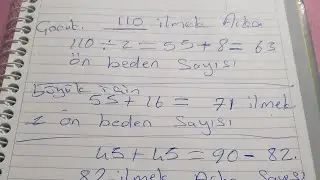 Çocuk. 110 ilmek Arka
110 ÷ 2 = 55 + 8 = 63
ön beden Sayısı
büyük için
55 + 16 = 71 ilmek
ön beden Sayısı
45 + 45 = 90 - 82.
82 ilmek Arka Sayısı